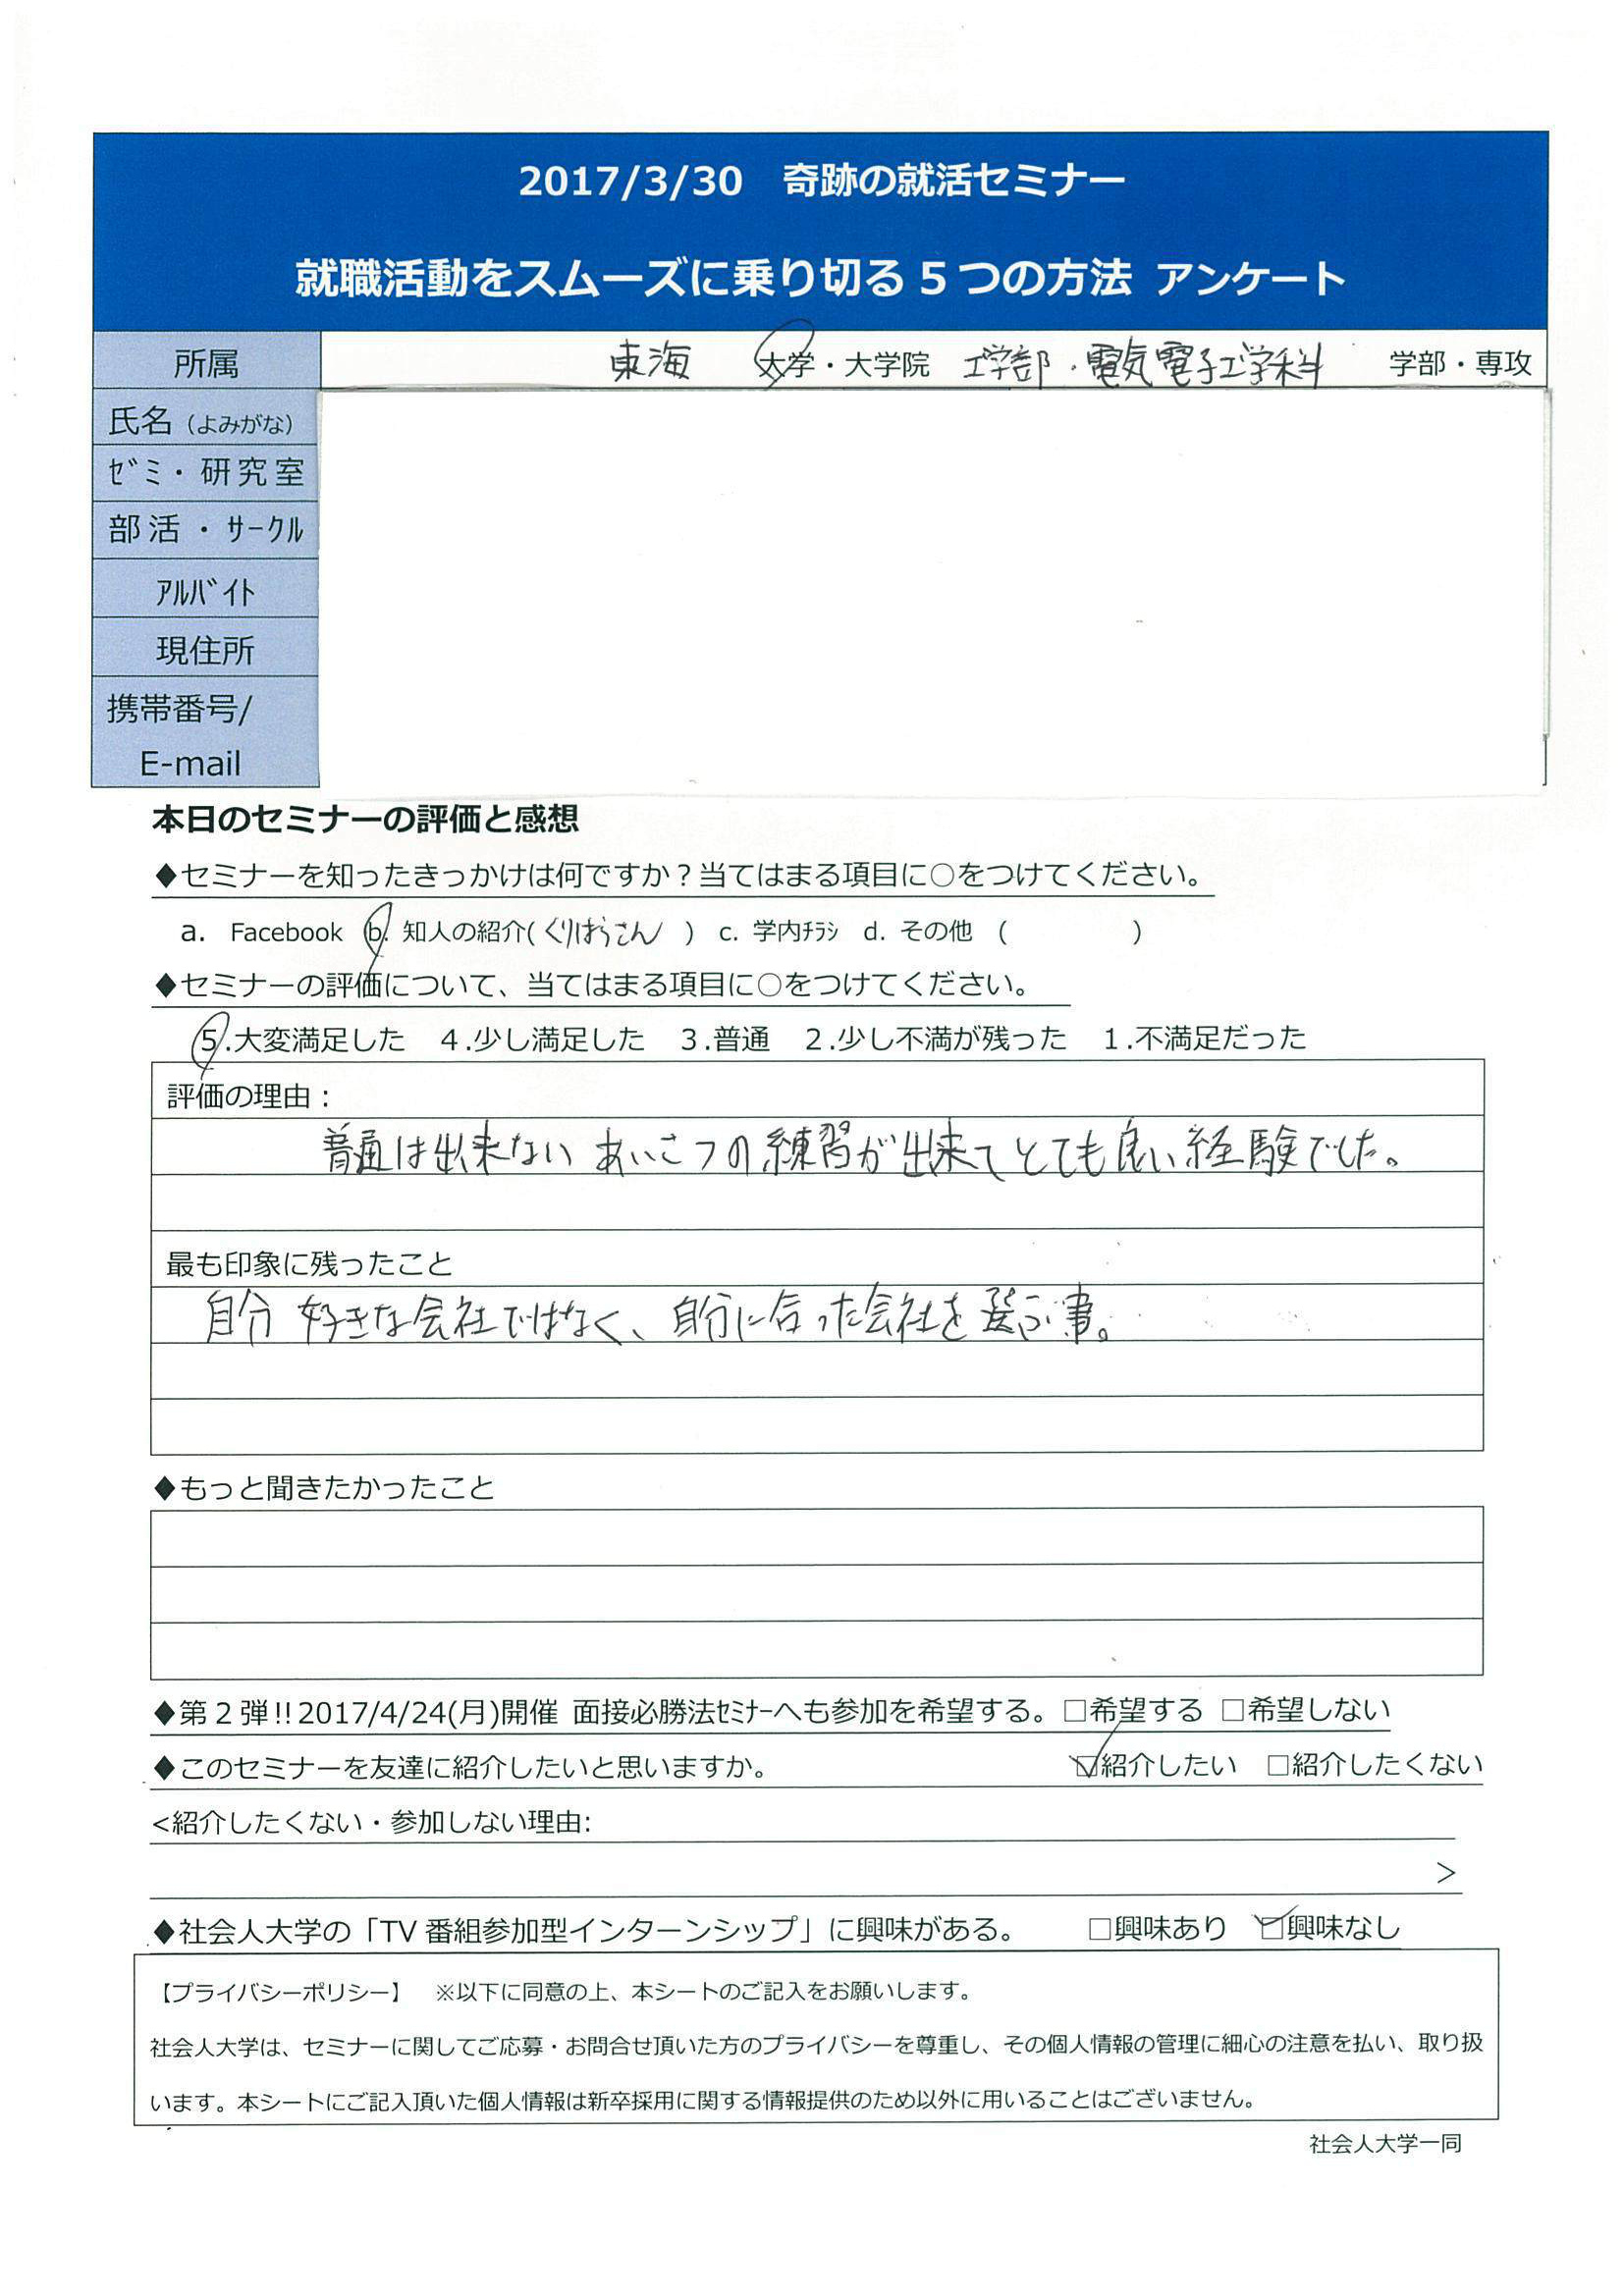 2017/3/30　奇跡の就活セミナー
就職活動をスムーズに乗り切る５つの方法 アンケート
所属　東海　大学・大学院　工学部・電気電子工学科　学部・専攻
氏名（よみがな）
ｾﾞミ・研究室
部活・ｻｰｸﾙ
ｱﾙﾊﾞｲﾄ
現住所
携帯番号/
E-mail
本日のセミナーの評価と感想
◆セミナーを知ったきっかけは何ですか？当てはまる項目に○をつけてください。
a. Facebook b. 知人の紹介(くりはらさん ) c. 学内ﾁﾗｼ d. その他 ( )
◆セミナーの評価について、当てはまる項目に○をつけてください。
5.大変満足した　４.少し満足した　３.普通　２.少し不満が残った　１.不満足だった
評価の理由：
普通は出来ない あいさつの練習が出来てとても良い経験でした。
最も印象に残ったこと
自分 好きな会社ではなく、自分に合った会社を選ぶ事。
◆もっと聞きたかったこと
◆第２弾!!2017/4/24(月)開催 面接必勝法ｾﾐﾅｰへも参加を希望する。□希望する □希望しない
◆このセミナーを友達に紹介したいと思いますか。　☑紹介したい　□紹介したくない
<紹介したくない・参加しない理由:
>
◆社会人大学の「TV 番組参加型インターンシップ」に興味がある。　□興味あり　☑興味なし
【プライバシーポリシー】　※以下に同意の上、本シートのご記入をお願いします。
社会人大学は、セミナーに関してご応募・お問合せ頂いた方のプライバシーを尊重し、その個人情報の管理に細心の注意を払い、取り扱
います。本シートにご記入頂いた個人情報は新卒採用に関する情報提供のため以外に用いることはございません。
社会人大学一同